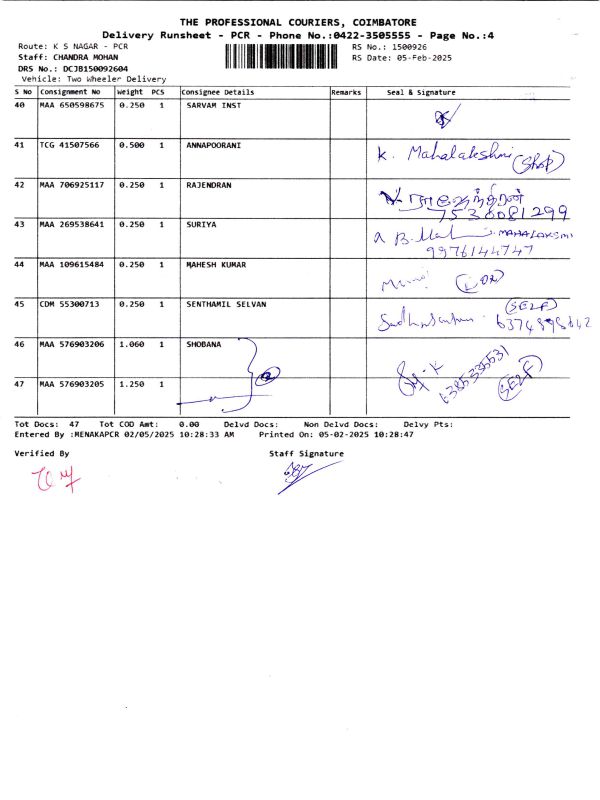 THE PROFESSIONAL COURIERS, COIMBATORE
Delivery Runsheet - PCR - Phone No.:0422-3505555 - Page No.:4
Route: K S NAGAR - PCR RS No.: 1500926
Staff: CHANDRA MOHAN RS Date: 05-Feb-2025
DRS No.: DCJB150092604
Vehicle: Two Wheeler Delivery
S No Consignment No Weight PCS Consignee Details Remarks Seal & Signature
40 MAA 650598675 0.250 1 SARVAM INST
41 TCG 41507566 0.500 1 ANNAPOORANI K. Mahalakshmi (Shop)
42 MAA 706925117 0.250 1 RAJENDRAN ராஜேந்திரன்
7530081299
43 MAA 269538641 0.250 1 SURIYA MAHALAKSMI
9976144747
44 MAA 109615484 0.250 1 MAHESH KUMAR
45 CDM 55300713 0.250 1 SENTHAMIL SELVAN (SELF)
46 MAA 576903206 1.060 1 SHOBANA 2 6385336531 (SELF)
47 MAA 576903205 1.250 1
Tot Docs: 47 Tot COD Amt: 0.00 Delvd Docs: Non Delvd Docs: Delvy Pts:
Entered By :MENAKAPCR 02/05/2025 10:28:33 AM Printed On: 05-02-2025 10:28:47
Verified By Staff Signature